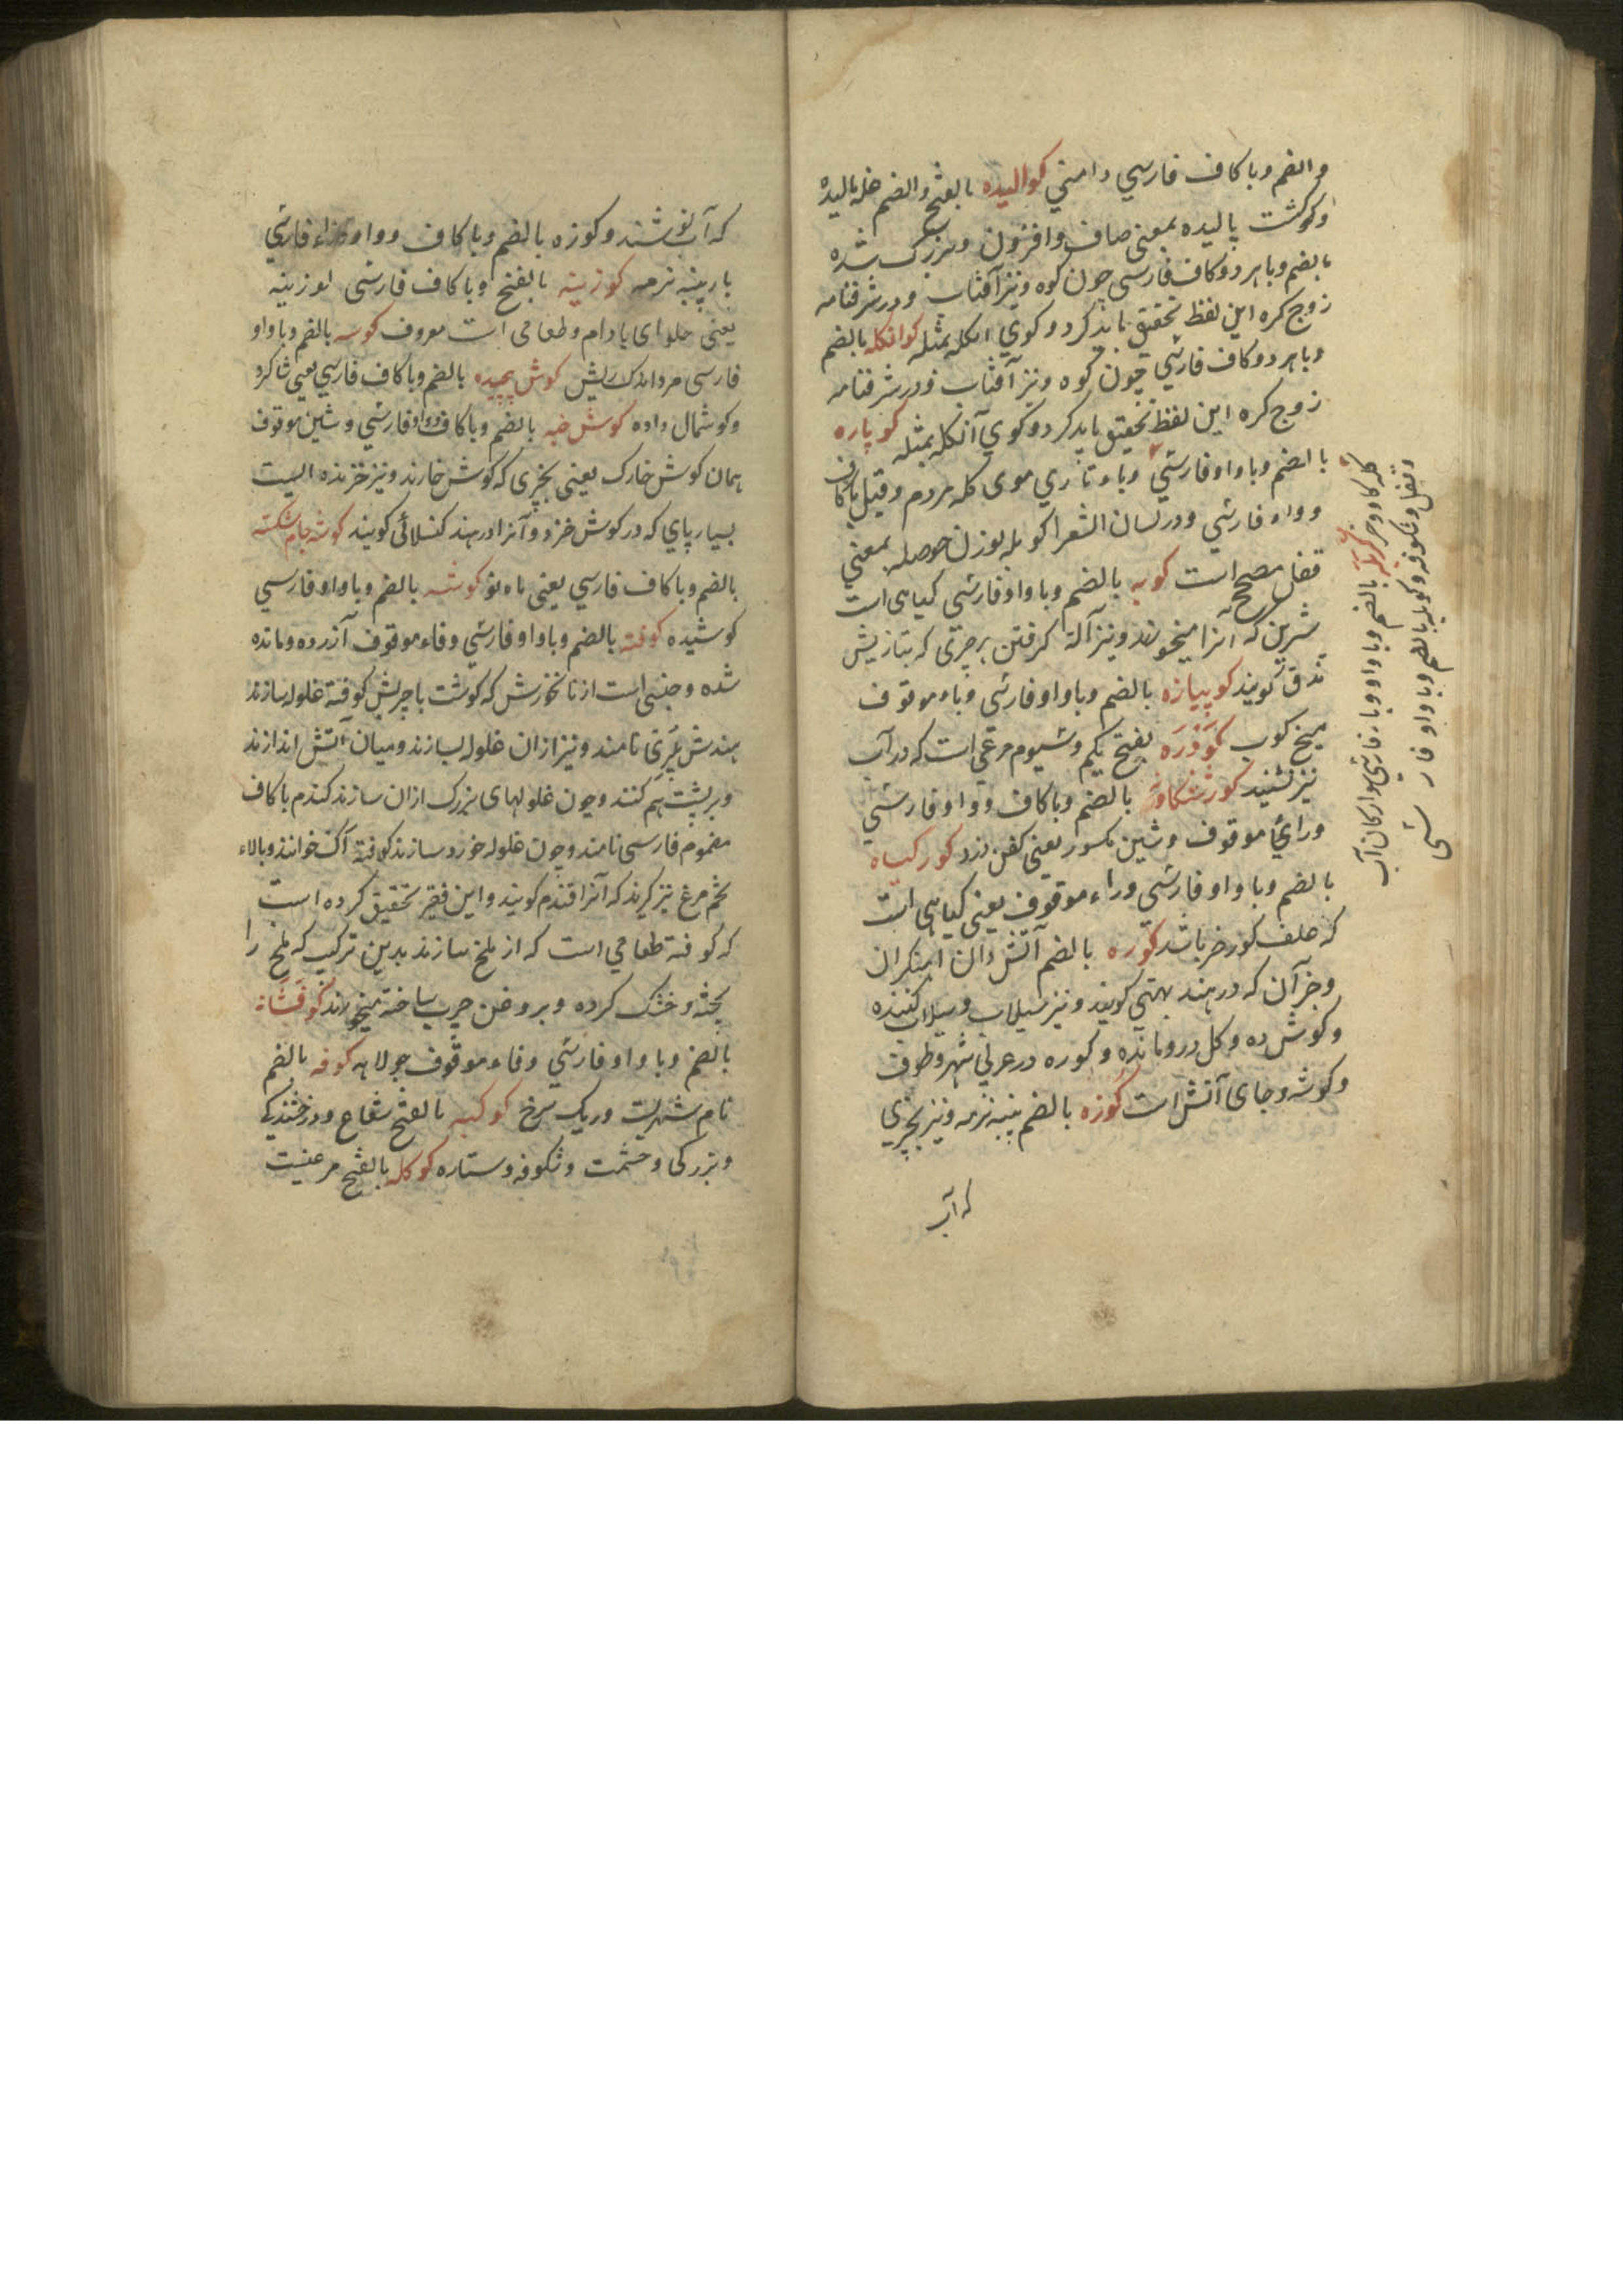 والضم وبا کاف فارسي دامني کوالیده بالفتح والضم غله بالیده
وکوشت پالیده بمعنی صاف وافزون وبزرک شده
بالضم وبا هر دو کاف فارسی چون کوه ونیز آفتاب ودر شرفنامه
زوج کره این لفظ تحقیق باید کرد وکوي انکله بمثله کوانکله بالضم
وبا هر دو کاف فارسي چون کوه ونیز آفتاب ودر شرفنامه
زوج کره این لفظ تحقیق باید کرد وکوي آنکله بمثله کوپاره
بالضم وبا واو فارسي وباء تازي موی کله مردم وقیل با کاف
وواو فارسي ودر لسان الشعرا کوبله بوزن حوصله بمعني
قفل مصحح است کوبه بالضم وبا واو فارسی کیاهی است
شیرین که آنرا میخورند ونیز آلة کرفتن برچیزی که بتازیش
دق کویند کوپیازه بالضم وبا واو فارسی وباء موقوف
میخ کوب کودره بفتح یکم وسیوم مرغي است که در آب
نیز نشیند کورشکاو بالضم وبا کاف وواو فارسي
وراي موقوف وشین مکسور یعنی کفن دزد کورکیاه
بالضم وبا واو فارسی وراء موقوف یعنی کیاهی است
که علف کورخر باشد کوره بالضم آتش دان آهنکران
وجز آن که در هند بهتي کویند ونیز سیلاب وسیلاب کننده
وکوش ده وکل درو مانده وکوره در عربي شهر وطرف
وکوشه وجای آتش است کوزه بالضم پنبه نرمه ونیز چیزي
که آب
کله کاو وخر کوپله بالضم وبا واو وباء فارسي سوارکان آب
وقفل وشکوفه وکوپله بالضم وبا واو فارسی
که آب نوشند وکوزه بالضم وبا کاف وواو وزاء فارسي
بار پنبه نرمه کوزینه بالفتح وبا کاف فارسی لوزینه
یعنی حلوای بادام وطعامی است معروف کوسه بالضم وبا واو
فارسی مرد اندک ریش کوش پیچیده بالضم وبا کاف فارسي یعني شاکرد
وکوشمال داده کوش خبه بالضم وبا کاف وواو فارسي وشین موقوف
همان کوش خارک یعنی چیزی که کوش خارند ونیز خزنده ایست
بسیار پاي که در کوش خزد وآنرا در هند کنسلائی کویند کوشه جام شکسته
بالضم وبا کاف فارسي یعنی ماه نو کوشه بالضم وبا واو فارسي
کوشیده کوفته بالضم وبا واو فارسي وفاء موقوف آزرده ومانده
شده وجنسی است از نانخورش که کوشت با چربش کوفته غلوله سازند
هندش بري نامند ونیز ازان غلوله بسازند ومیان آتش اندازند
وبر پشت هم کنند وچون غلولهای بزرک ازان سازند کندم با کاف
مضموم فارسی نامند وچون غلوله خورد سازند کوفته آکنه خوانند وبالاء
تخم مرغ نیز کیرند که آنرا قندم کویند واین فقیر تحقیق کرده است
که کوفته طعامي است که از ملخ سازند بدین ترکیب که ملخ را
پخته وخشک کرده وبروغن چرب ساخته میخورند کوفشانه
بالضم وبا واو فارسي وفاء موقوف جولاهه کوفه بالضم
نام شهریست وریک سرخ کوکبه بالفتح شعاع ودرخشندکي
وبزرکی وحشمت وشکوفه وستاره کوکله بالفتح مرغیست